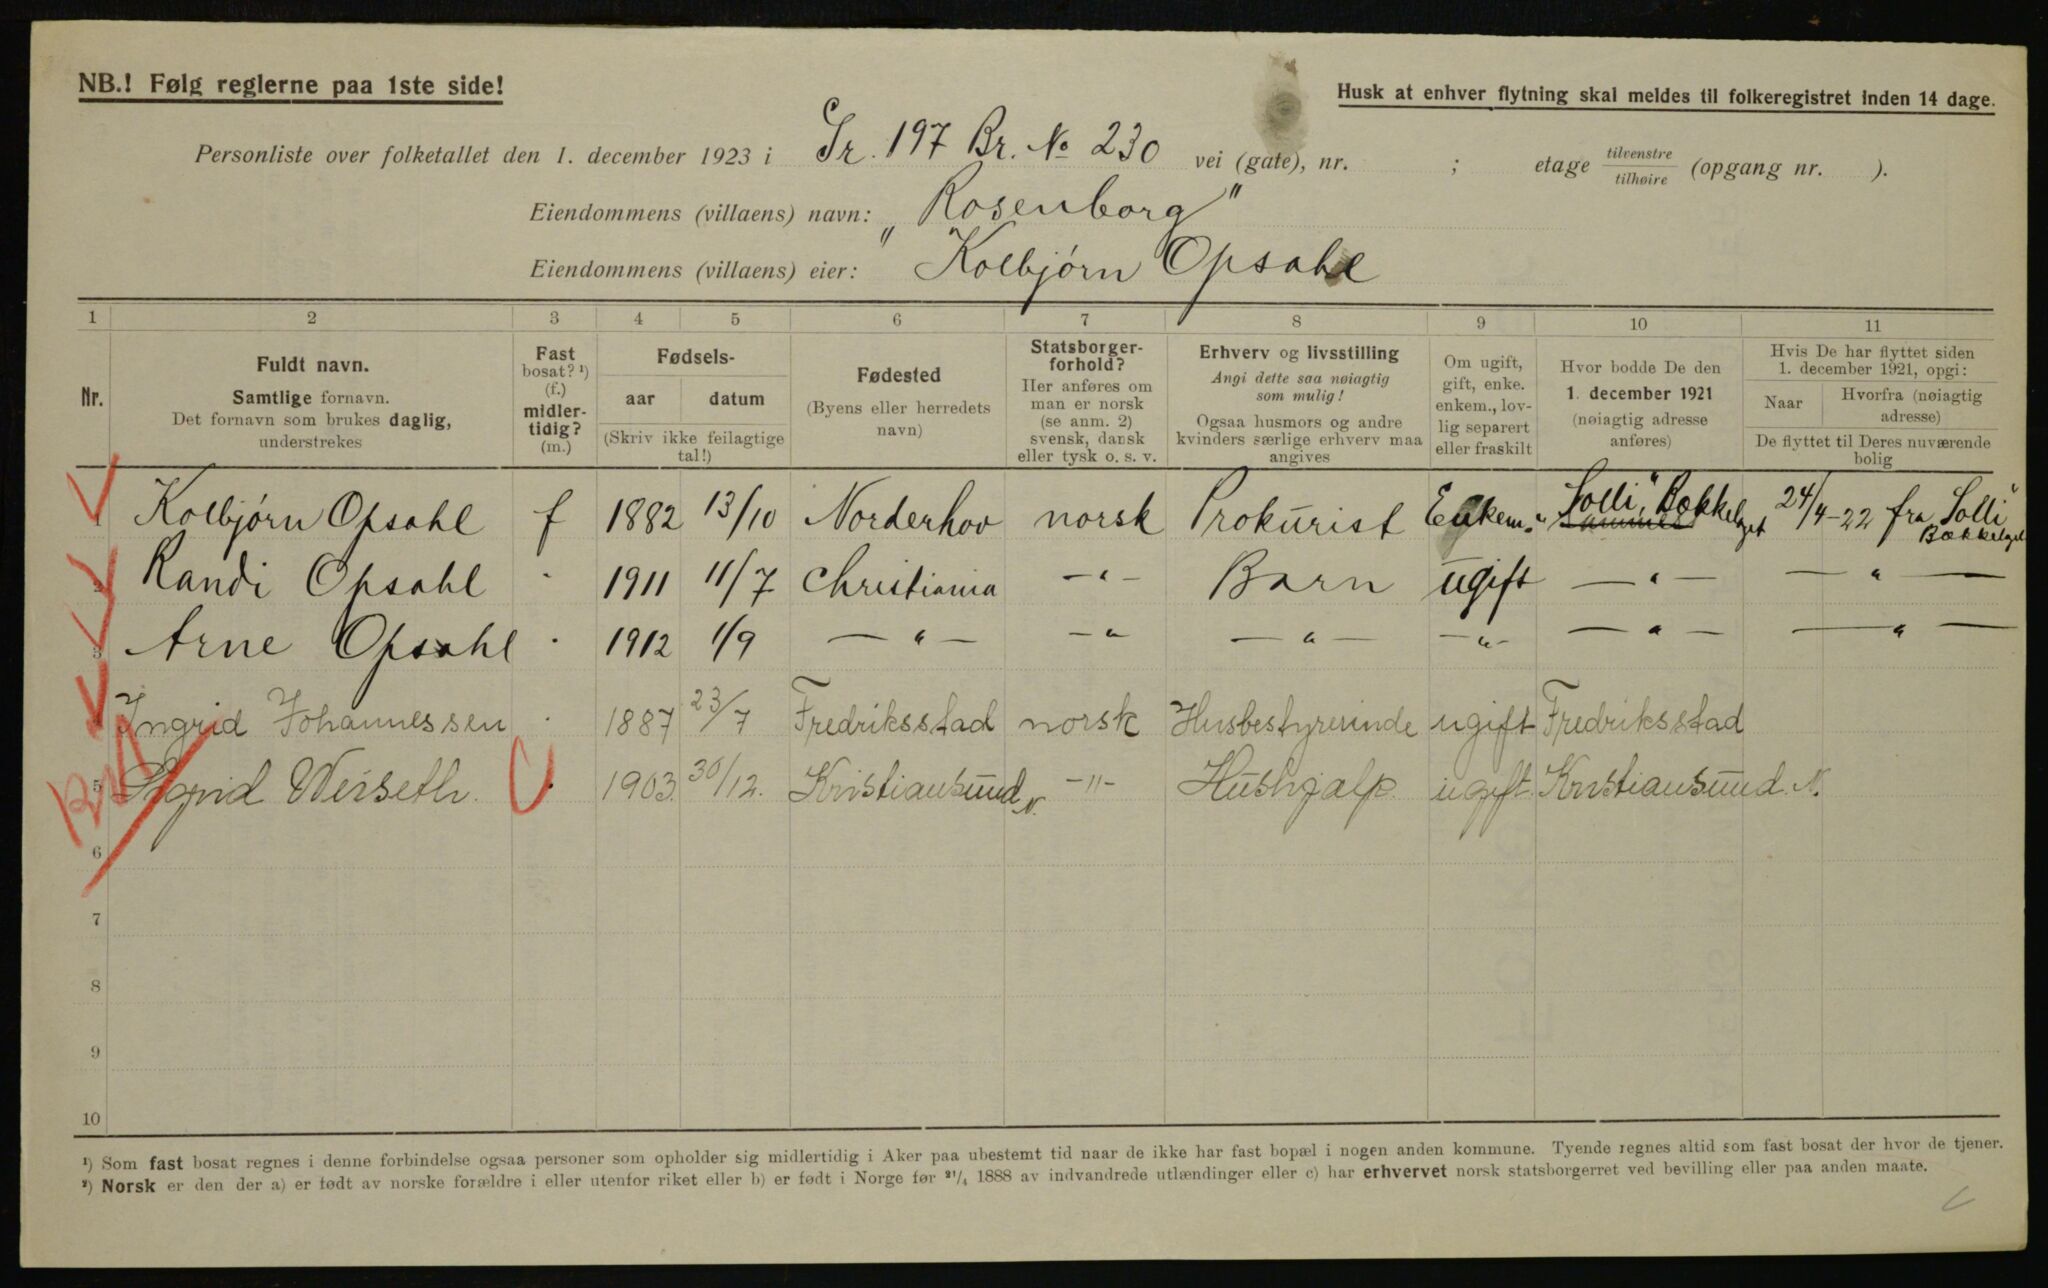 NB.! Følg reglerne paa 1ste side!
Husk at enhver flytning skal meldes til folkeregistret inden 14 dage.
Personliste over folketallet den 1. december 1923 i Gr. 197 Br. No 230 vei (gate), nr. ; etage tilvenstre tilhøire (opgang nr. ).
Eiendommens (villaens) navn: „Rosenborg"
Eiendommens (villaens) eier: Kolbjørn Opsahl
1 2 3 4 5 6 7 8 9 10 11
Nr.
Fuldt navn.
Samtlige fornavn.
Det fornavn som brukes daglig,
understrekes
Fast
bosat? ¹)
(f.)
midler-
tidig?
(m.)
Fødsels-
aar datum
(Skriv ikke feilagtige
tal!)
Fødested
(Byens eller herredets
navn)
Statsborger-
forhold?
Her anføres om
man er norsk
(se anm. 2)
svensk, dansk
eller tysk o. s. v.
Erhverv og livsstilling
Angi dette saa nøiagtig
som mulig!
Ogsaa husmors og andre
kvinders særlige erhverv maa
angives
Om ugift,
gift, enke.
enkem., lov-
lig separert
eller fraskilt
Hvor bodde De den
1. december 1921
(nøiagtig adresse
anføres)
Hvis De har flyttet siden
1. december 1921, opgi:
Naar Hvorfra (nøiagtig
adresse)
De flyttet til Deres nuværende
bolig
1 Kolbjørn Opsahl f 1882 13/10 Norderhov norsk Prokurist Enkem. „Solli" Bækkelaget 24/4-22 fra „Solli" Bækkelaget
2 Randi Opsahl · 1911 11/7 Christiania —"— Barn ugift —"— —"—
3 Arne Opsahl · 1912 1/9 —"— —"— —"— —"— —"— —"—
4 Ingrid Johannessen · 1887 23/7 Fredriksstad norsk Husbestyrerinde ugift Fredriksstad
5 Sigrid Weiseth. · 1903. 30/12. Kristiansund N. —"— Hushjalp. ugift. Kristiansund. N.
6
7
8
9
10
¹) Som fast bosat regnes i denne forbindelse ogsaa personer som opholder sig midlertidig i Aker paa ubestemt tid naar de ikke har fast bopæl i nogen anden kommune. Tyende regnes altid som fast bosat der hvor de tjener.
²) Norsk er den der a) er født av norske forældre i eller utenfor riket eller b) er født i Norge før ²¹/₄ 1888 av indvandrede utlændinger eller c) har erhvervet norsk statsborgerret ved bevilling eller paa anden maate.